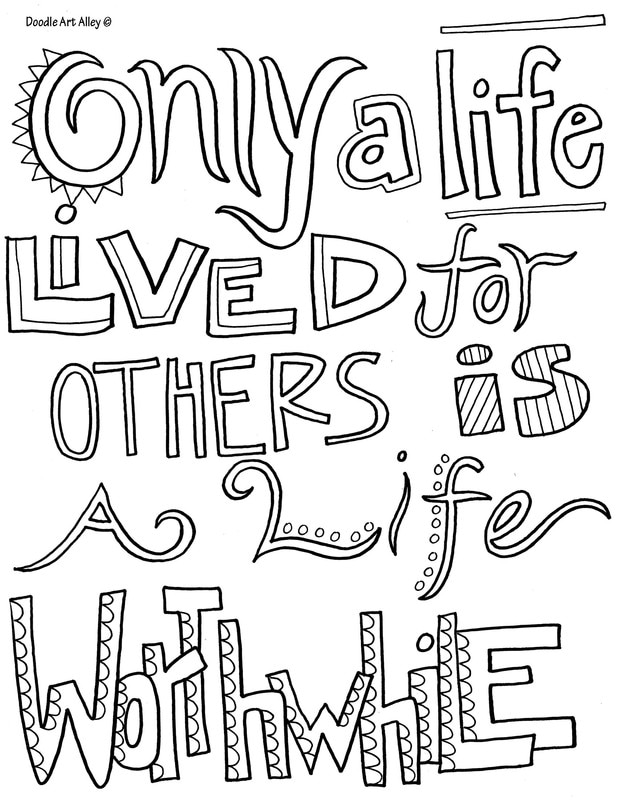 Doodle Art Alley ©
Only a life
LiVED for
OTHERS is
A Life
WorThwhiLE